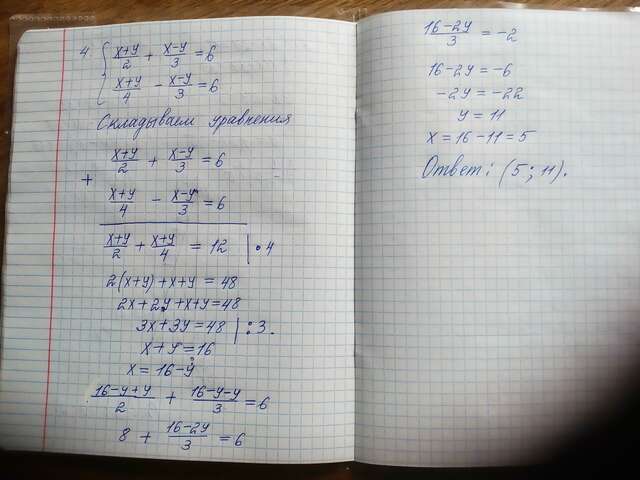 4. { (x+y)/2 + (x-y)/3 = 6
(x+y)/4 - (x-y)/3 = 6
Складываем уравнения
+ (x+y)/2 + (x-y)/3 = 6
(x+y)/4 - (x-y)/3 = 6
(x+y)/2 + (x+y)/4 = 12 | • 4
2(x+y)+x+y = 48
2x+2y+x+y=48
3x+3y=48 | : 3.
x+y=16
x = 16-y
(16-y+y)/2 + (16-y-y)/3 = 6
8 + (16-2y)/3 = 6
(16-2y)/3 = -2
16-2y = -6
-2y = -22
y = 11
x = 16-11 = 5
Ответ: (5; 11).